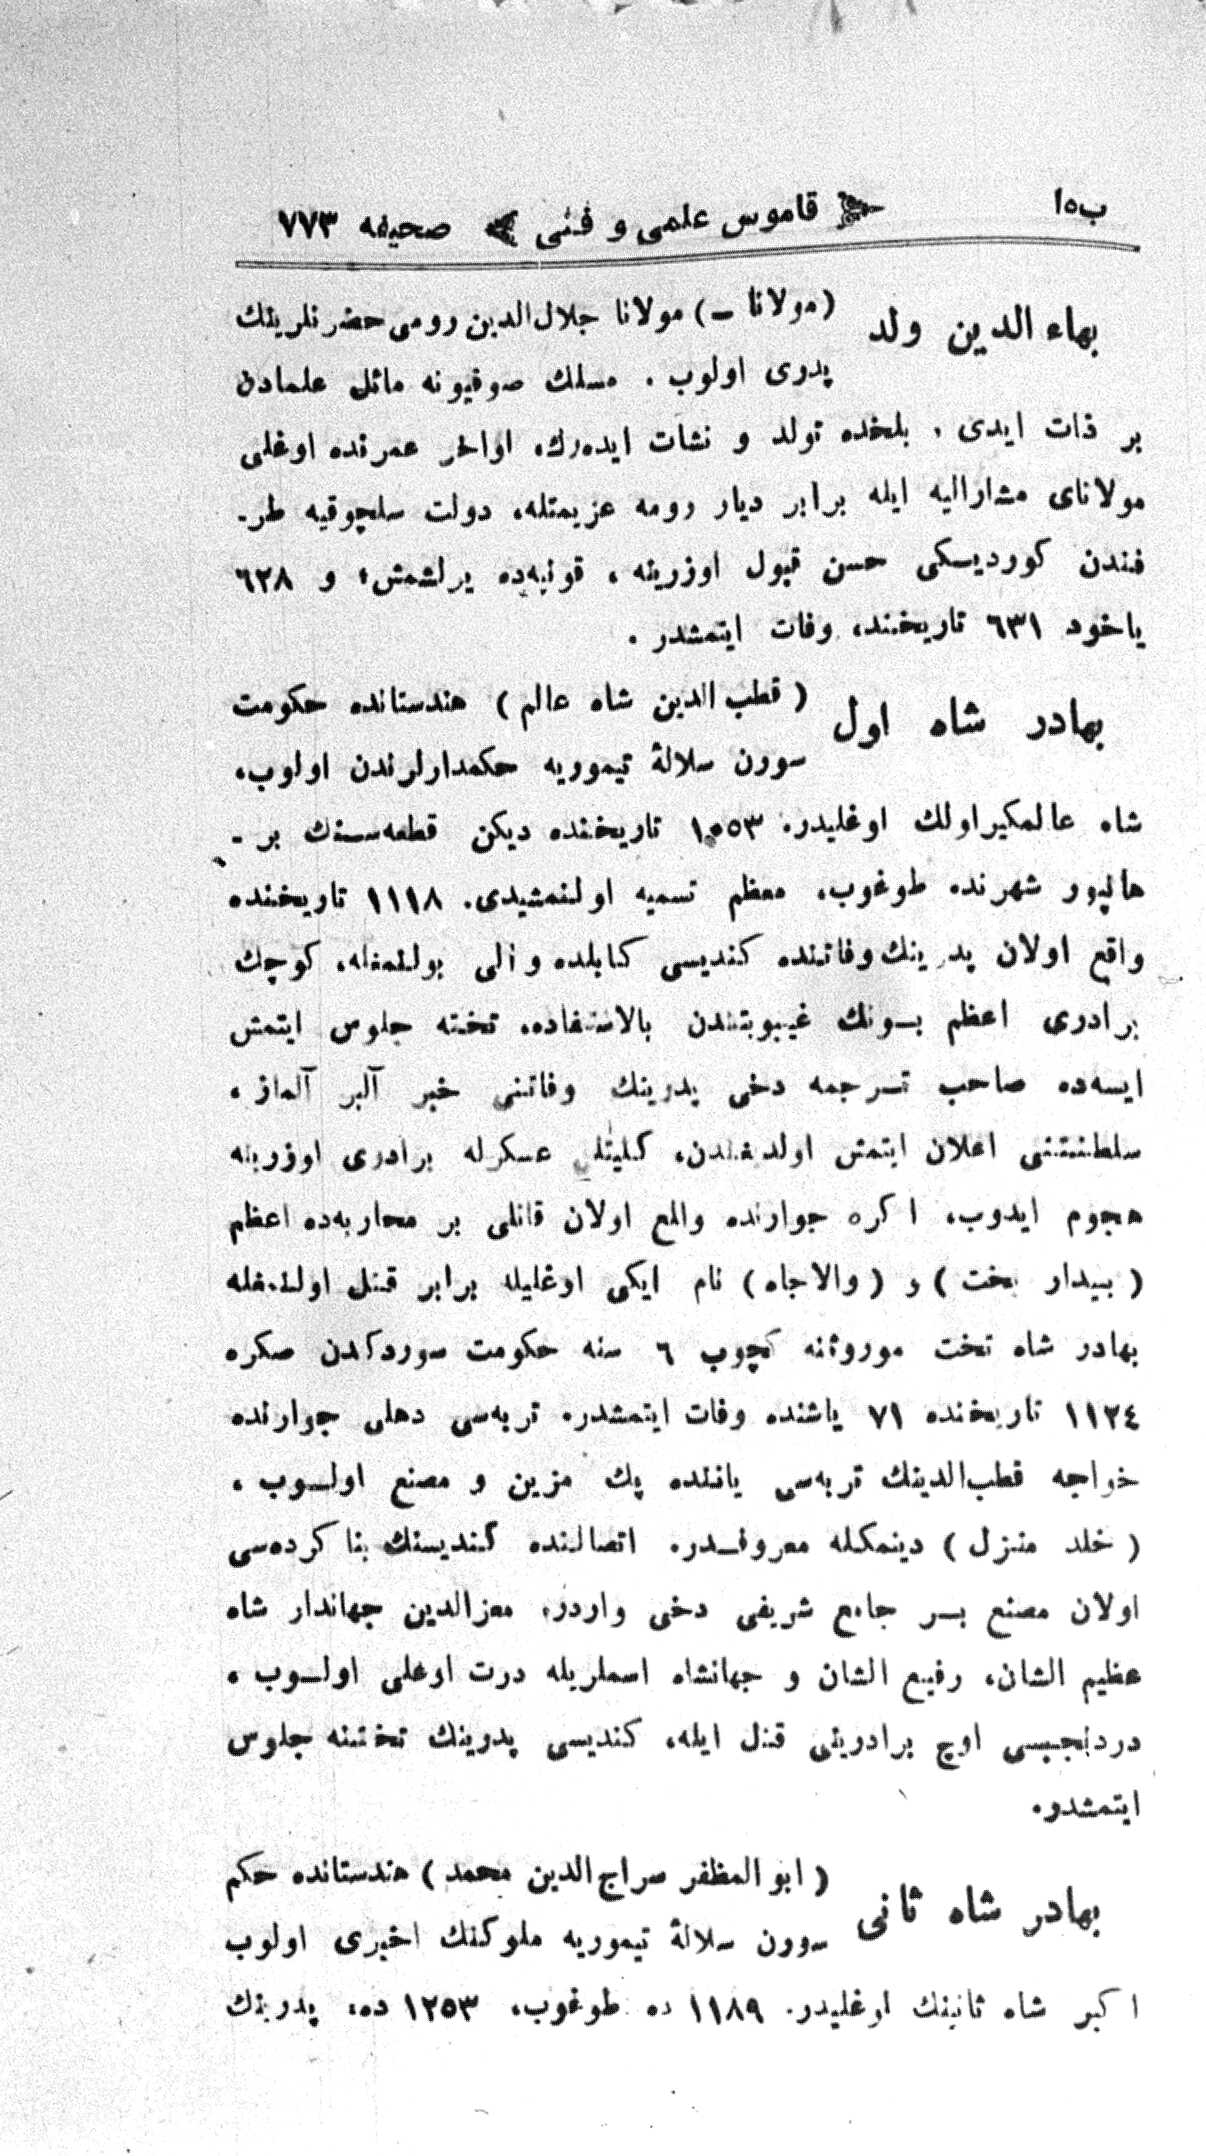 ب‌ه‌ا قاموس علمی و فنی صحیفه ٧٧٣
بهاء الدین ولد (مولانا ـ) مولانا جلال‌الدین رومی حضرتلرینك
پدری اولوب ، مسلك صوفیونه مائل علمادن
بر ذات ایدی ، بلخده تولد و نشأت ایده‌رك، اواخر عمرنده اوغلی
مولانای مشارالیه ایله برابر دیار رومه عزیمتله، دولت سلچوقیه طر-
فندن كوردیسكی حسن قبول اوزرینه ، قونیه‌ده یرلشمش، و ٦٢٨
یاخود ٦٣١ تاریخنده، وفات ایتمشدر .
بهادر شاه اول (قطب الدین شاه عالم) هندستانده حكومت
سورن سلالهٔ تیموریه حكمدارلرندن اولوب،
شاه عالمكیراولك اوغلیدر. ١٠٥٣ تاریخنده دیكن قطعه‌سنك بر-
هانپور شهرنده طوغوب، معظم تسمیه اولنمشیدی. ١١١٨ تاریخنده
واقع اولان پدرینك وفاتنده كندیسی كابلده والی بولنمغله، كوچك
برادری اعظم بونك غیبوبتندن بالاستفاده، تخته جلوس ایتمش
ایسه‌ده صاحب ترجمه دخی پدرینك وفاتنی خبر آلیر آلماز ،
سلطنتنی اعلان ایتمش اولدیغندن، كلیتلی عسكرله برادری اوزرینه
هجوم ایدوب، اكره جوارنده واقع اولان قانلی بر محاربه‌ده اعظم
(بیدار بخت) و (والاجاه) نام ایكی اوغلیله برابر قتل اولنمغله
بهادر شاه تخت موروثنه كچوب ٦ سنه حكومت سوردكدن صكره
١١٢٤ تاریخنده ٧١ یاشنده وفات ایتمشدر. تربه‌سی دهلی جوارنده
خواجه قطب‌الدینك تربه‌سی یاننده پك مزین و مصنع اولوب ،
(خلد منزل) دینمكله معروفدر. اتصالنده كندیسنك بنا كرده‌سی
اولان مصنع بر جامع شریفی دخی واردر، معزالدین جهاندار شاه
عظیم الشان، رفیع الشان و جهانشاه اسملریله درت اوغلی اولوب ،
دردنجیسی اوچ برادرینی قتل ایله، كندیسی پدرینك تختنه جلوس
ایتمشدر.
بهادر شاه ثانی (ابو المظفر سراج الدین محمد) هندستانده حكم
سورن سلالهٔ تیموریه ملوكنك اخیری اولوب
اكبر شاه ثانینك اوغلیدر. ١١٨٩ ده طوغوب، ١٢٥٣ ده، پدرینك